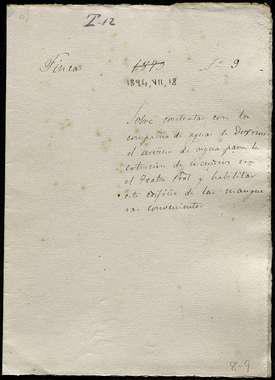 I-12
Fincas
1º 9
1894, VII, 18
Sobre contratar con la
compañia de aguas
el servicio de agua para la
extincion de incendios en
el Teatro Real y habilitar
este edificio de las mangue
ras convenientes
8-9